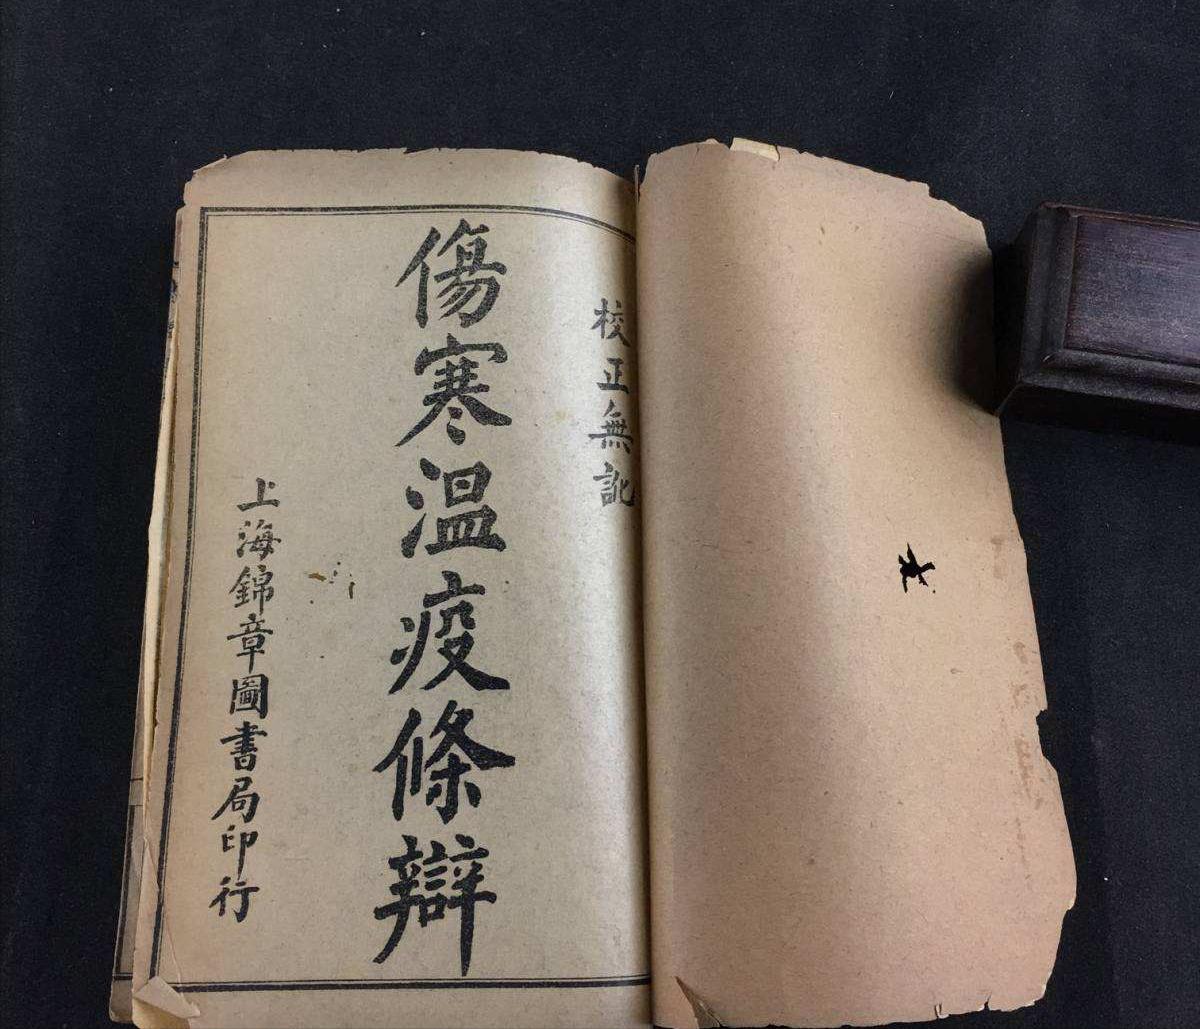 校正無訛
傷寒温疫條辯
上海錦章圖書局印行